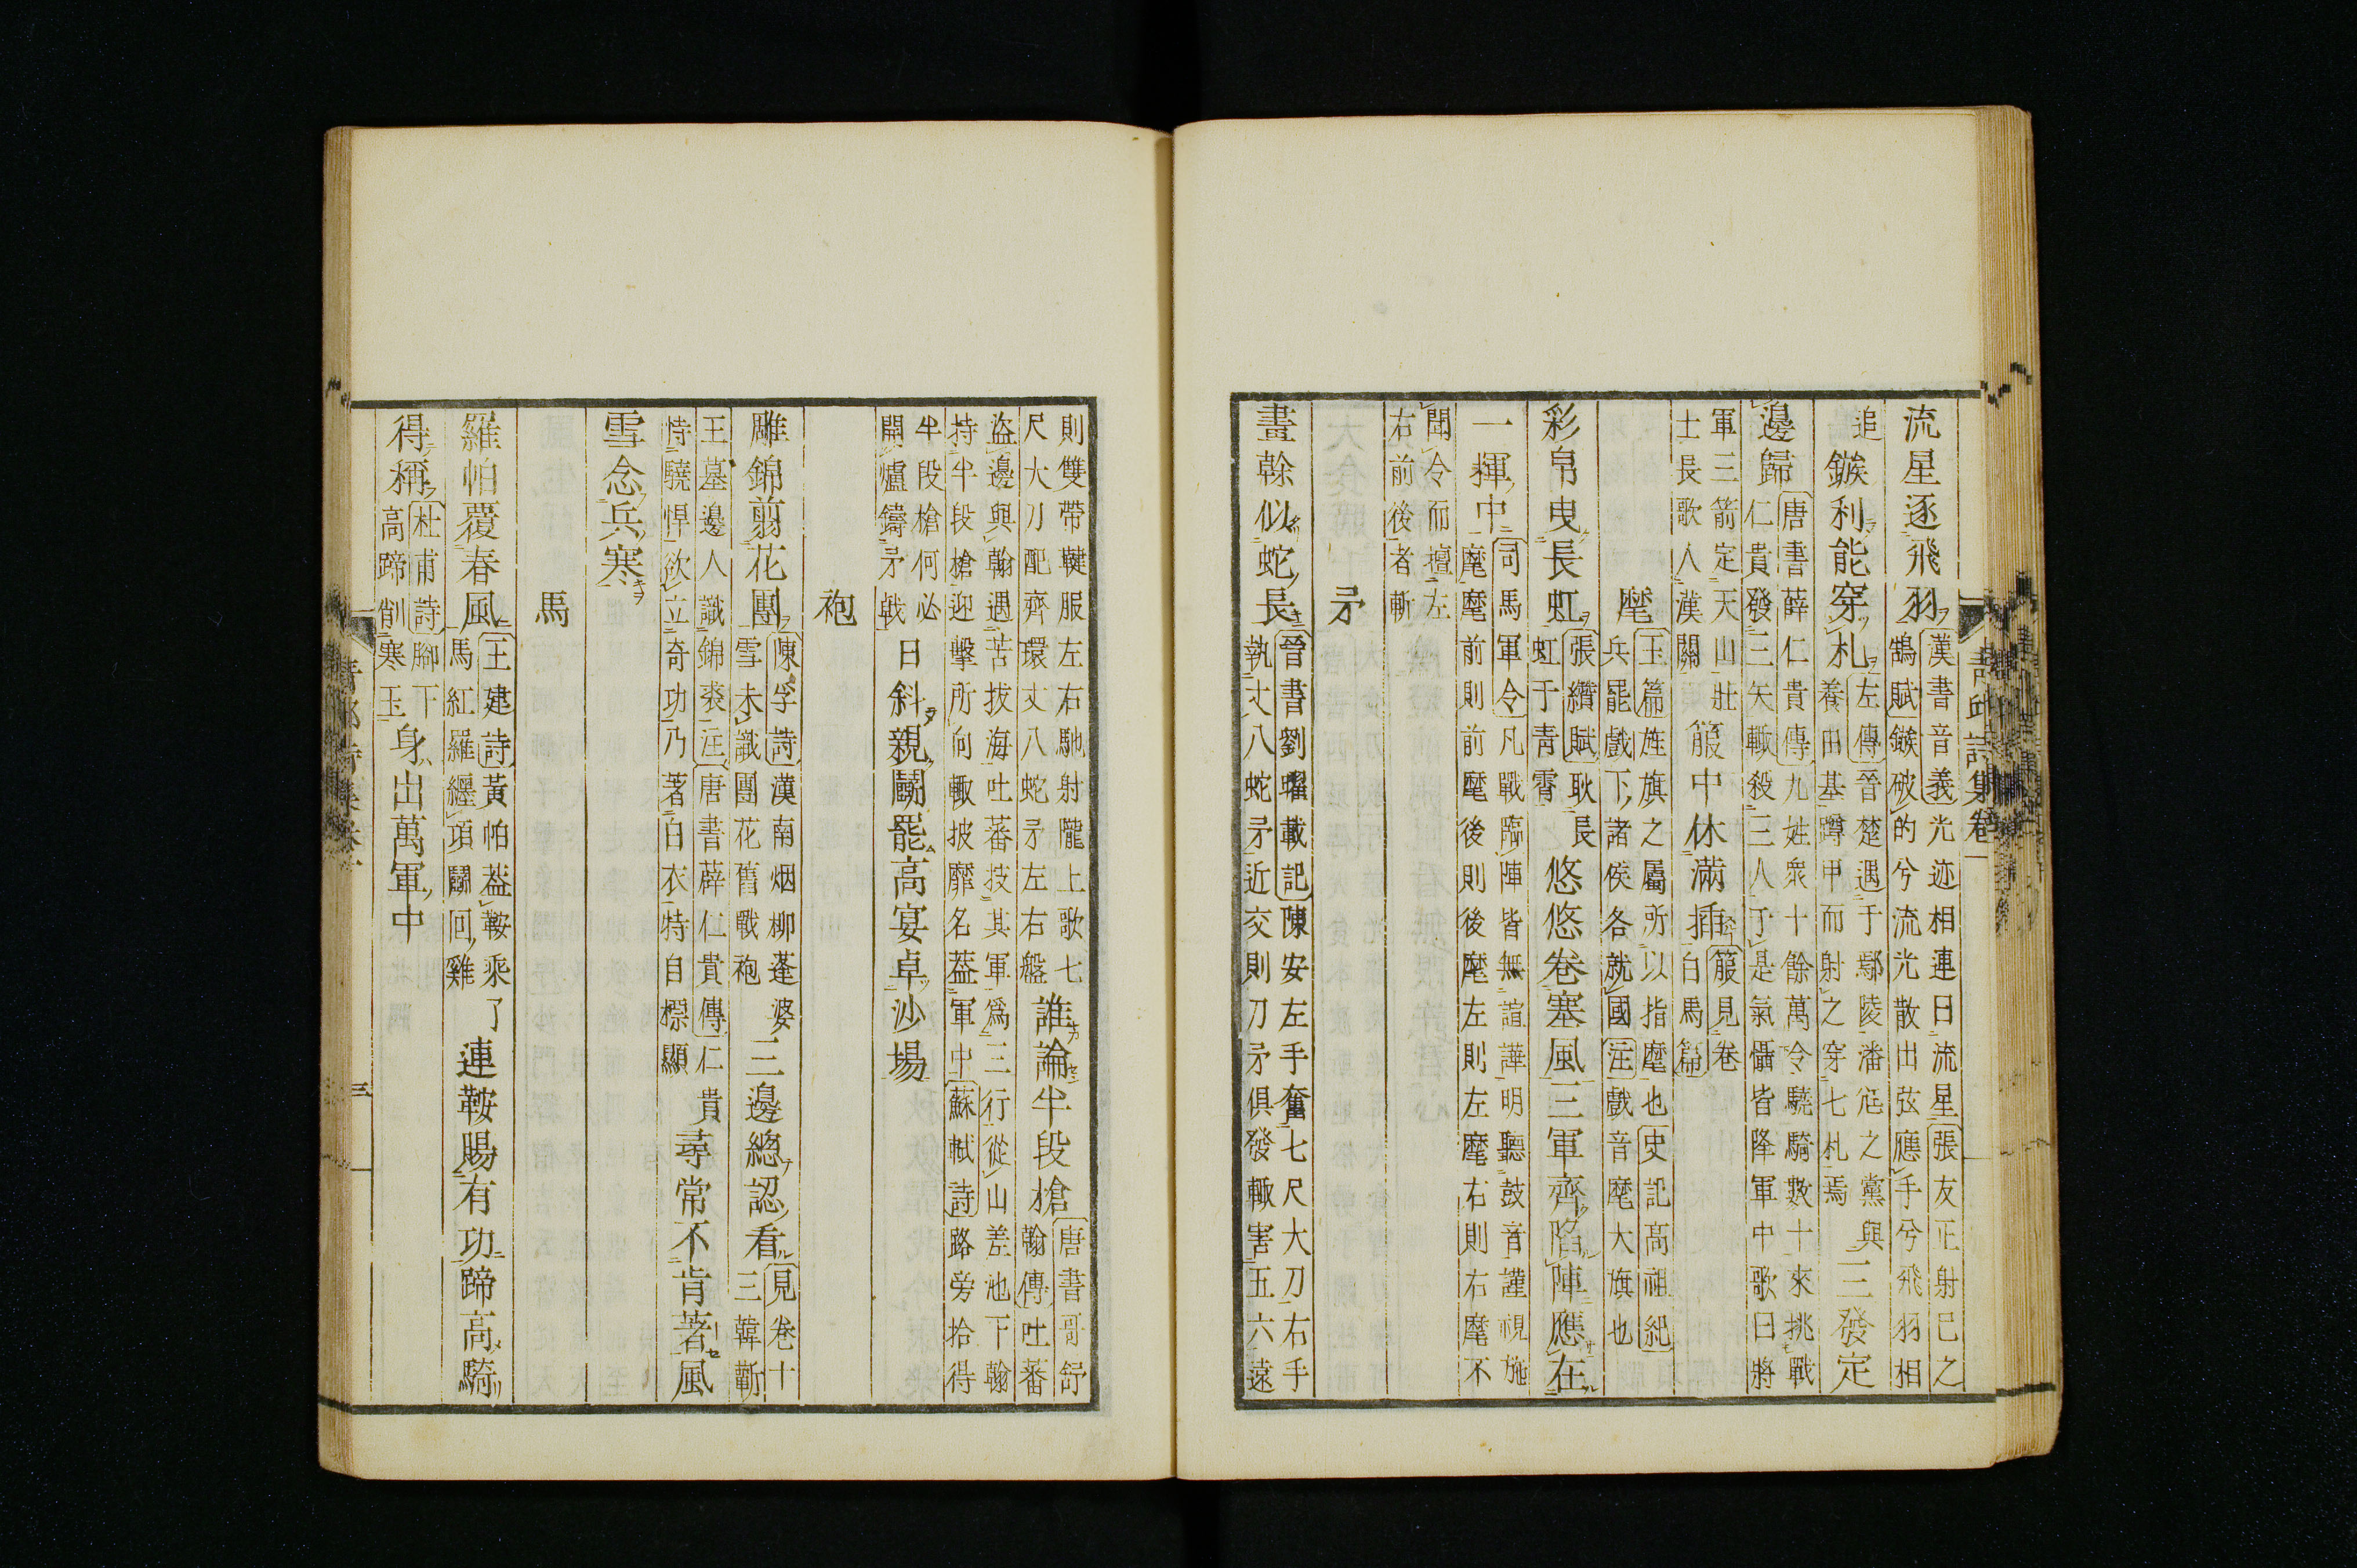 青邱詩集卷一
流星逐飛羽漢書音義光迹相連曰流星張友正射己之鵠賦鏃破的兮流光散出弦應手兮飛羽相
追鏃利能穿札左傳晉楚遇于鄢陵潘尫之黨與養由基蹲甲而射之穿七札焉三發定
邊歸唐書薛仁貴傳九姓衆十餘萬令驍騎數十來挑戰仁貴發三矢輒殺三人于是氣懾皆降軍中歌曰將
軍三箭定天山壯士長歌入漢關箙中休滿插箙見卷白馬篇
麾玉篇旌旗之屬所以指麾也史記高祖紀兵罷戲下諸侯各就國注戲音麾大旗也
彩帛曳長虹張纘賦耿長虹于青霄悠悠卷塞風三軍齊陷陣應在
一揮中司馬軍令凡戰臨陣皆無諠譁明聽鼓音謹視施麾麾前則前麾後則後麾左則左麾右則右麾不
聞令而擅左右前後者斬
矛
畫榦似蛇長晉書劉曜載記陳安左手奮七尺大刀右手執丈八蛇矛近交則刀矛俱發輒害五六遠
則雙帶鞬服左右馳射隴上歌七尺大刀配齊環丈八蛇矛左右盤誰論半段槍唐書哥舒翰傳吐蕃
盜邊與翰遇苦拔海吐蕃枝其軍爲三行從山差池下翰持半段槍迎擊所向輒披靡名蓋軍中蘇軾詩路旁拾得
半段槍何必開爐鑄矛戟日斜親鬭罷高宴卓沙場
袍
雕錦翦花團陳孚詩漢南烟柳蓬婆雪未識團花舊戰袍三邊總認看見卷十三韓蘄
王墓邊人識錦裘注唐書薛仁貴傳仁貴恃驍悍欲立奇功乃著白衣特自標顯尋常不肯著風
雪念兵寒
馬
羅帕覆春風王建詩黃帕蓋鞍乘了馬紅羅纒項鬭回雞連鞍賜有功蹄高騎
得稱杜甫詩腳下高蹄削寒玉身出萬軍中
三